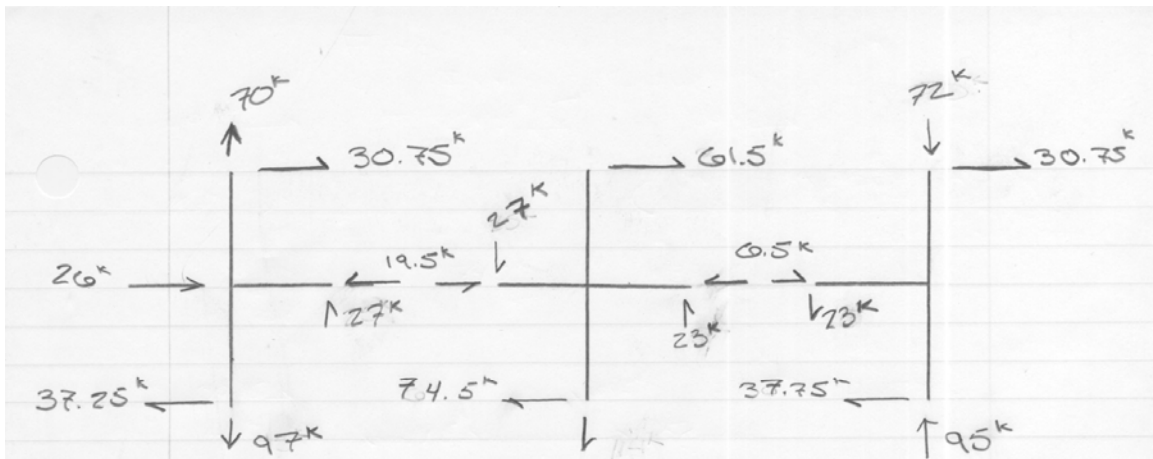 70ᵏ
72ᵏ
30.75ᵏ
61.5ᵏ
30.75ᵏ
27ᵏ
26ᵏ
19.5ᵏ
6.5ᵏ
27ᵏ
23ᵏ
23ᵏ
37.25ᵏ
74.5ᵏ
37.75ᵏ
97ᵏ
95ᵏ